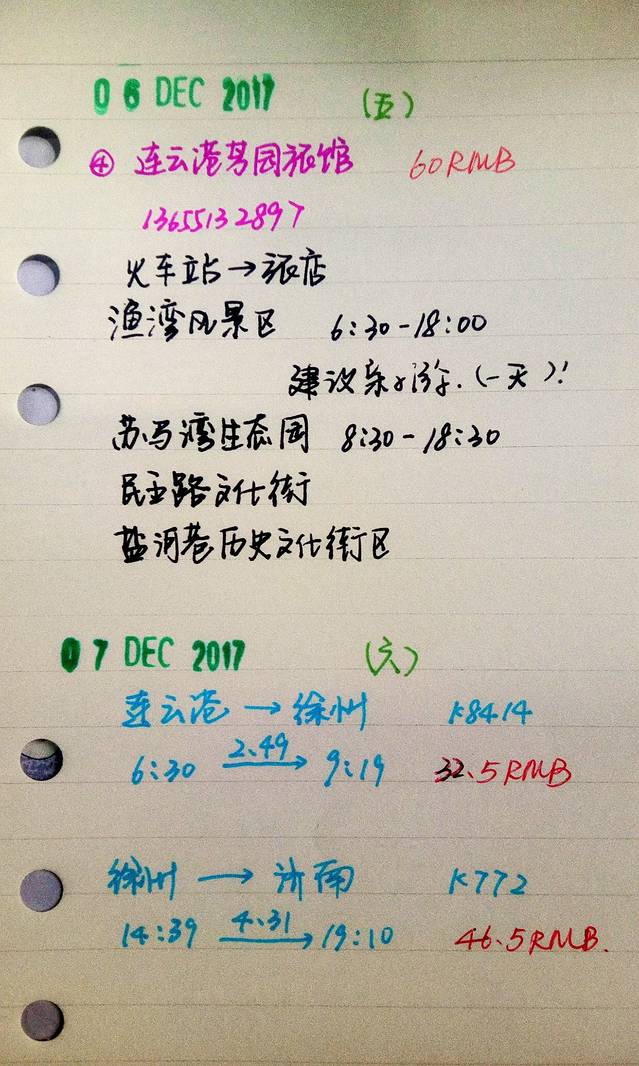 06 DEC 2017 (五)
④ 连云港茗园旅馆 60RMB
13655132897
火车站→旅店
渔湾风景区 6:30-18:00
建议 游.(一天)!
苏马湾生态园 8:30-18:30
民主路文化街
盐河巷历史文化街区
07 DEC 2017 (六)
连云港→徐州 K8414
6:30 2.49 9:19 32.5RMB
徐州→济南 K772
14:39 4.31 19:10 46.5RMB.